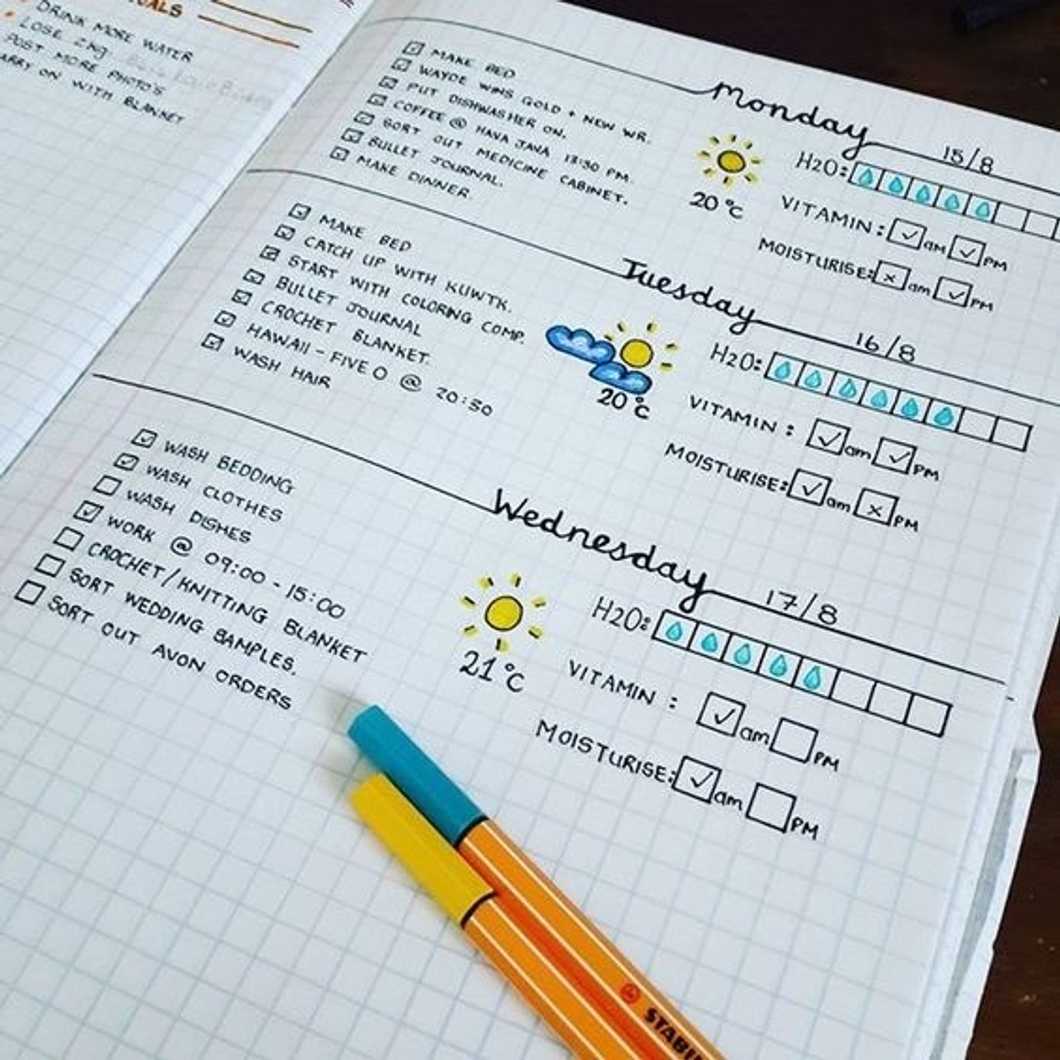 DRINK MORE WATER
LOSE 2 KG
POST MORE PHOTO'S
CARRY ON WITH BLANKET
monday 15/8
MAKE BED
WAYDE WINS GOLD + NEW WR.
PUT DISHWASHER ON.
COFFEE @ HAVA JAVA 13:30 PM.
SORT OUT MEDICINE CABINET.
BULLET JOURNAL.
MAKE DINNER
20°C
H2O:
VITAMIN: am PM
MOISTURISE: am PM
Tuesday 16/8
MAKE BED
CATCH UP WITH KUWTK.
START WITH COLORING COMP.
BULLET JOURNAL
CROCHET BLANKET.
HAWAII-FIVE O @ 20:30
WASH HAIR
20°C
H2O:
VITAMIN: am PM
MOISTURISE: am PM
Wednesday 17/8
WASH BEDDING
WASH CLOTHES
WASH DISHES
WORK @ 09:00 - 15:00
CROCHET/KNITTING BLANKET
SORT WEDDING SAMPLES.
SORT OUT AVON ORDERS
21°C
H2O:
VITAMIN: am PM
MOISTURISE: am PM